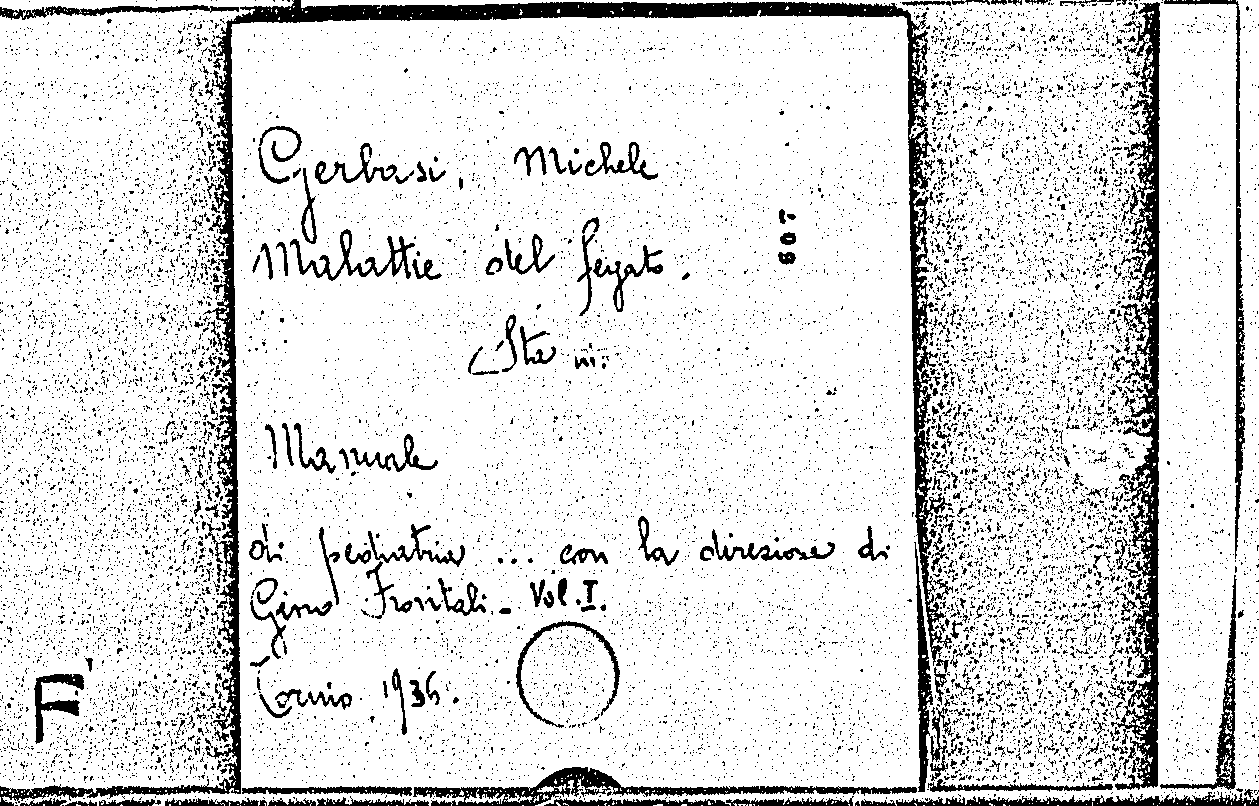 Gerbasi, Michele
Malattie del fegato.
Sta in:
Manuale
di pediatria ... con la direzione di
Gino Frontali - Vol. I.
Torino 1936.
607
F